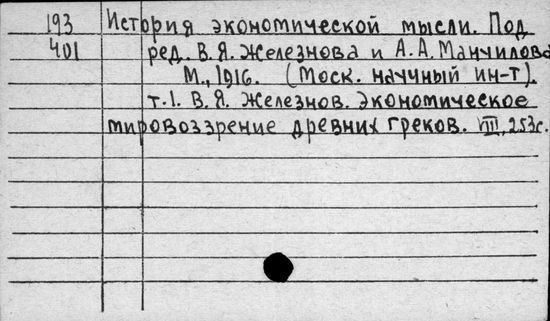 193 История экономической мысли. Под
401 ред. В. Я. Железнова и А. А. Мануилова
М., 1916. (Моск. научный ин-т).
т. 1. В. Я. Железнов. Экономическое
мировоззрение древних греков. VIII, 253с.